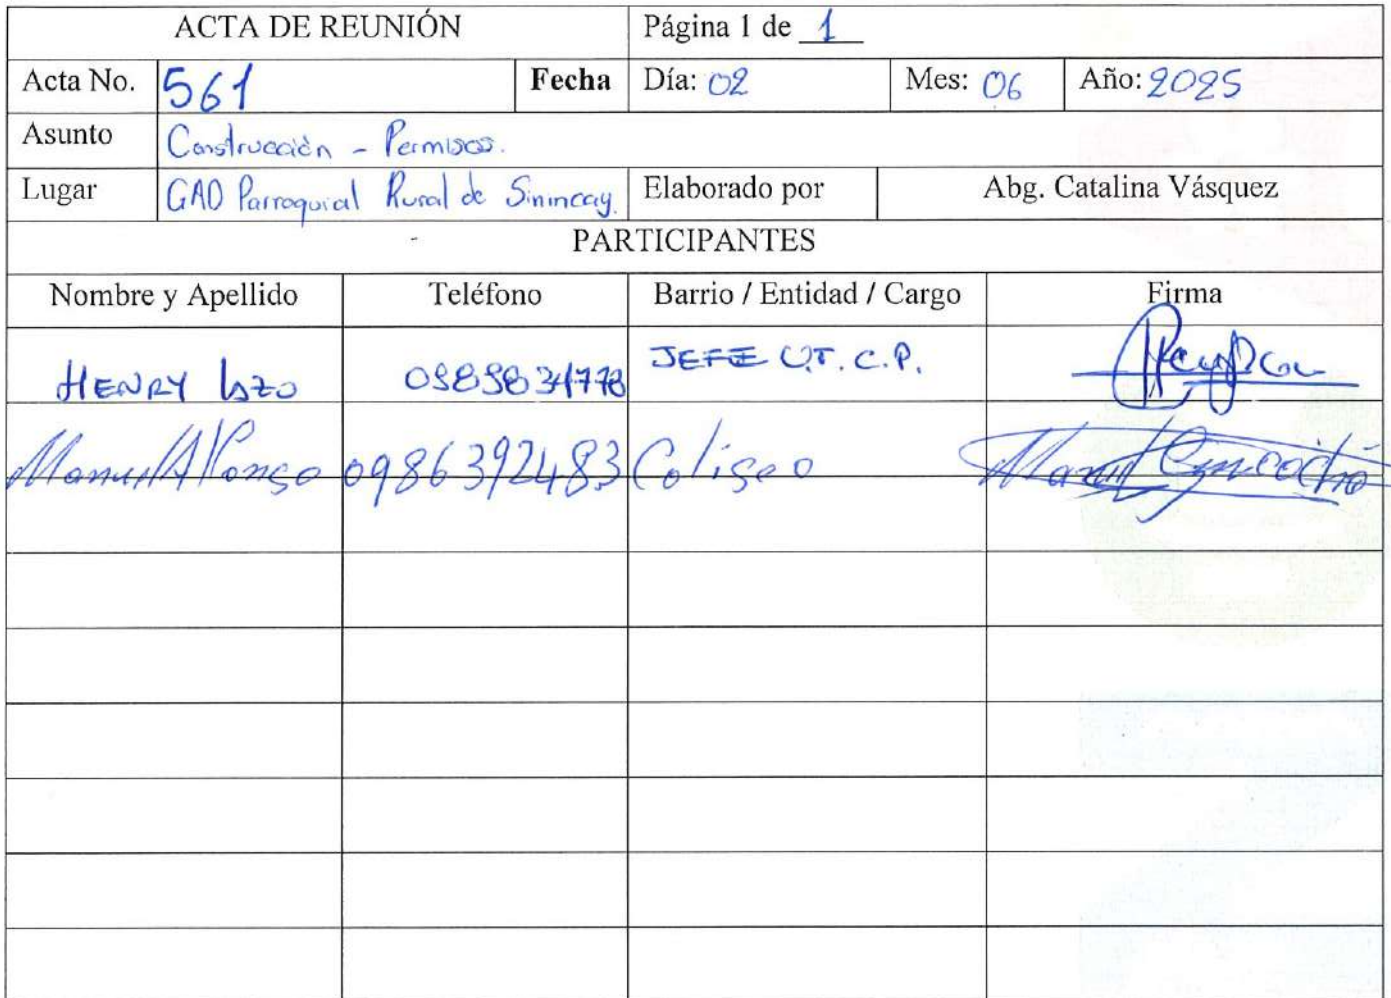 ACTA DE REUNIÓN Página 1 de 1
Acta No. 561 Fecha Día: 02 Mes: 06 Año: 2025
Asunto Construcción - Permisos.
Lugar GAD Parroquial Rural de Sinincay. Elaborado por Abg. Catalina Vásquez
PARTICIPANTES
Nombre y Apellido Teléfono Barrio / Entidad / Cargo Firma
HENRY LAZO JEFE U.T.C.P.
Manuel Alfonso 0986392483 Coliseo Manuel